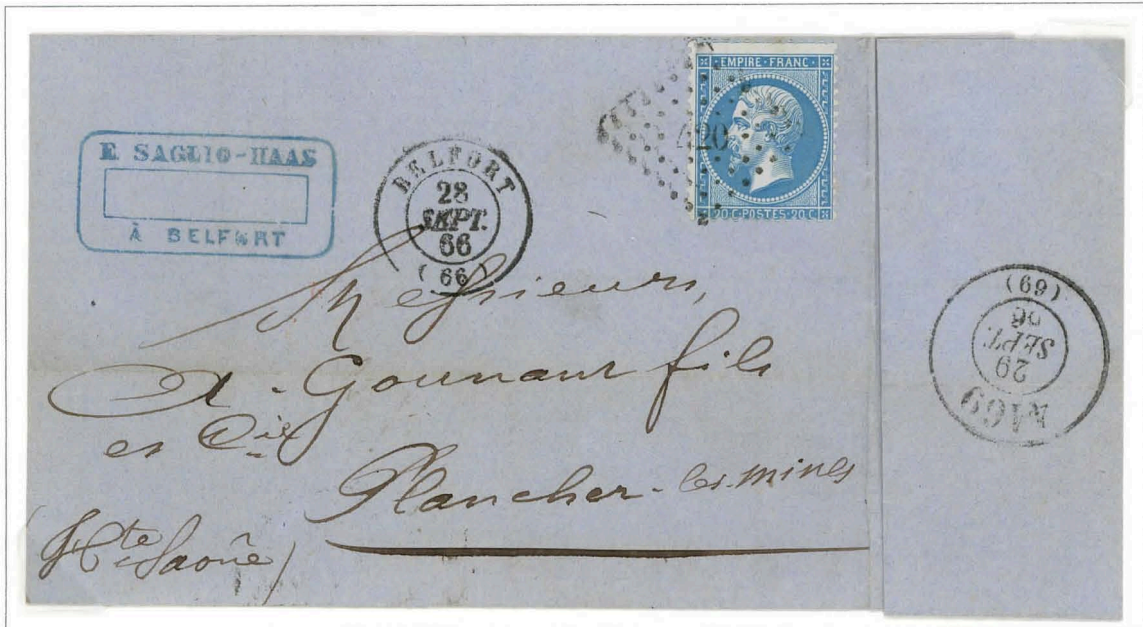 E. SAGLIO-HAAS
À BELFORT
BELFORT
28
SEPT.
66
(66)
EMPIRE·FRANC·
420
20 C·POSTES·20 C
Messieurs,
A. Gournaux fils
et Cie
Plancher-les-mines
(Hte Saône)
29
SEPT.
66
(69)